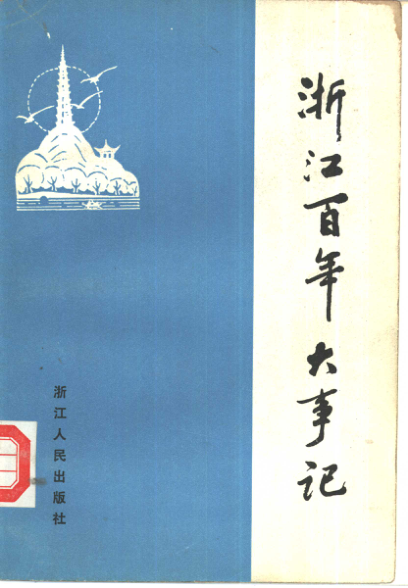 浙江百年大事记
浙江人民出版社